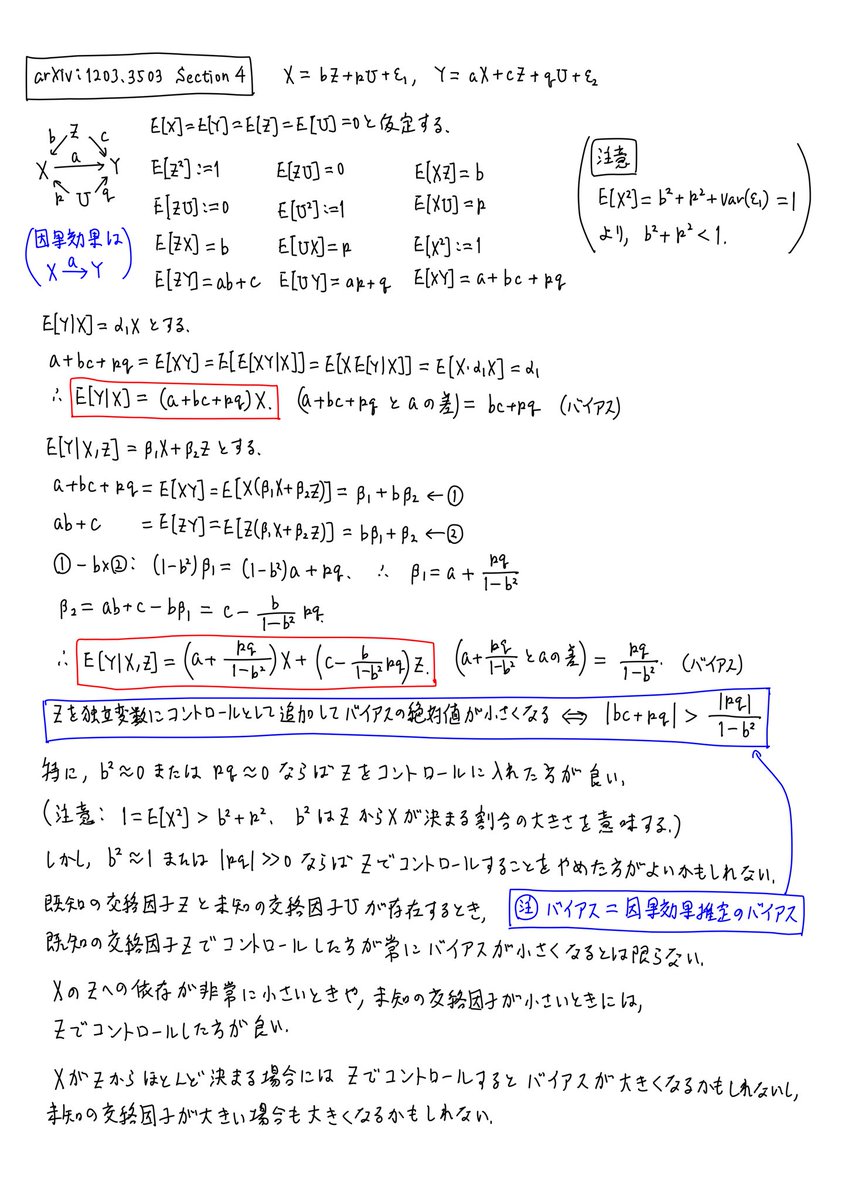 arXiv:1203.3503 Section 4 X = bZ+pU+ε₁, Y = aX+cZ+qU+ε₂
E[X]=E[Y]=E[Z]=E[U]=0と仮定する.
b Z c
X a→ Y
p U q
E[Z²]:=1 E[ZU]=0 E[XZ]=b
E[ZU]:=0 E[U²]:=1 E[XU]=p
E[ZX]=b E[UX]=p E[X²]:=1
E[ZY]=ab+c E[UY]=ap+q E[XY]=a+bc+pq
注意
E[X²]=b²+p²+var(ε₁)=1
より, b²+p²<1.
(因果効果は
X a→ Y)
E[Y|X]=α₁X とする.
a+bc+pq = E[XY] = E[E[XY|X]] = E[XE[Y|X]] = E[X·α₁X] = α₁
∴ E[Y|X] = (a+bc+pq)X. (a+bc+pq と a の差) = bc+pq (バイアス)
E[Y|X,Z] = β₁X+β₂Z とする.
a+bc+pq = E[XY] = E[X(β₁X+β₂Z)] = β₁+bβ₂ ← ①
ab+c = E[ZY] = E[Z(β₁X+β₂Z)] = bβ₁+β₂ ← ②
①-b×②: (1-b²)β₁ = (1-b²)a+pq. ∴ β₁ = a + pq/(1-b²)
β₂ = ab+c-bβ₁ = c - b/(1-b²) pq.
∴ E[Y|X,Z] = (a + pq/(1-b²))X + (c - b/(1-b²) pq)Z. (a + pq/(1-b²) と a の差) = pq/(1-b²). (バイアス)
Zを独立変数にコントロールとして追加してバイアスの絶対値が小さくなる ⇔ |bc+pq| > |pq|/(1-b²)
特に, b²≈0 または pq≈0 ならば Zをコントロールに入れた方が良い.
(注意: 1=E[X²]>b²+p². b²はZからXが決まる割合の大きさを意味する.)
しかし, b²≈1 または |pq|≫0 ならば Zでコントロールすることをやめた方がよいかもしれない.
既知の交絡因子Zと未知の交絡因子Uが存在するとき,
注 バイアス = 因果効果推定のバイアス
既知の交絡因子Zでコントロールした方が常にバイアスが小さくなるとは限らない.
XのZへの依存が非常に小さいときや, 未知の交絡因子が小さいときには,
Zでコントロールした方が良い.
XがZからほとんど決まる場合には Zでコントロールすると バイアスが大きくなるかもしれないし,
未知の交絡因子が大きい場合も大きくなるかもしれない.